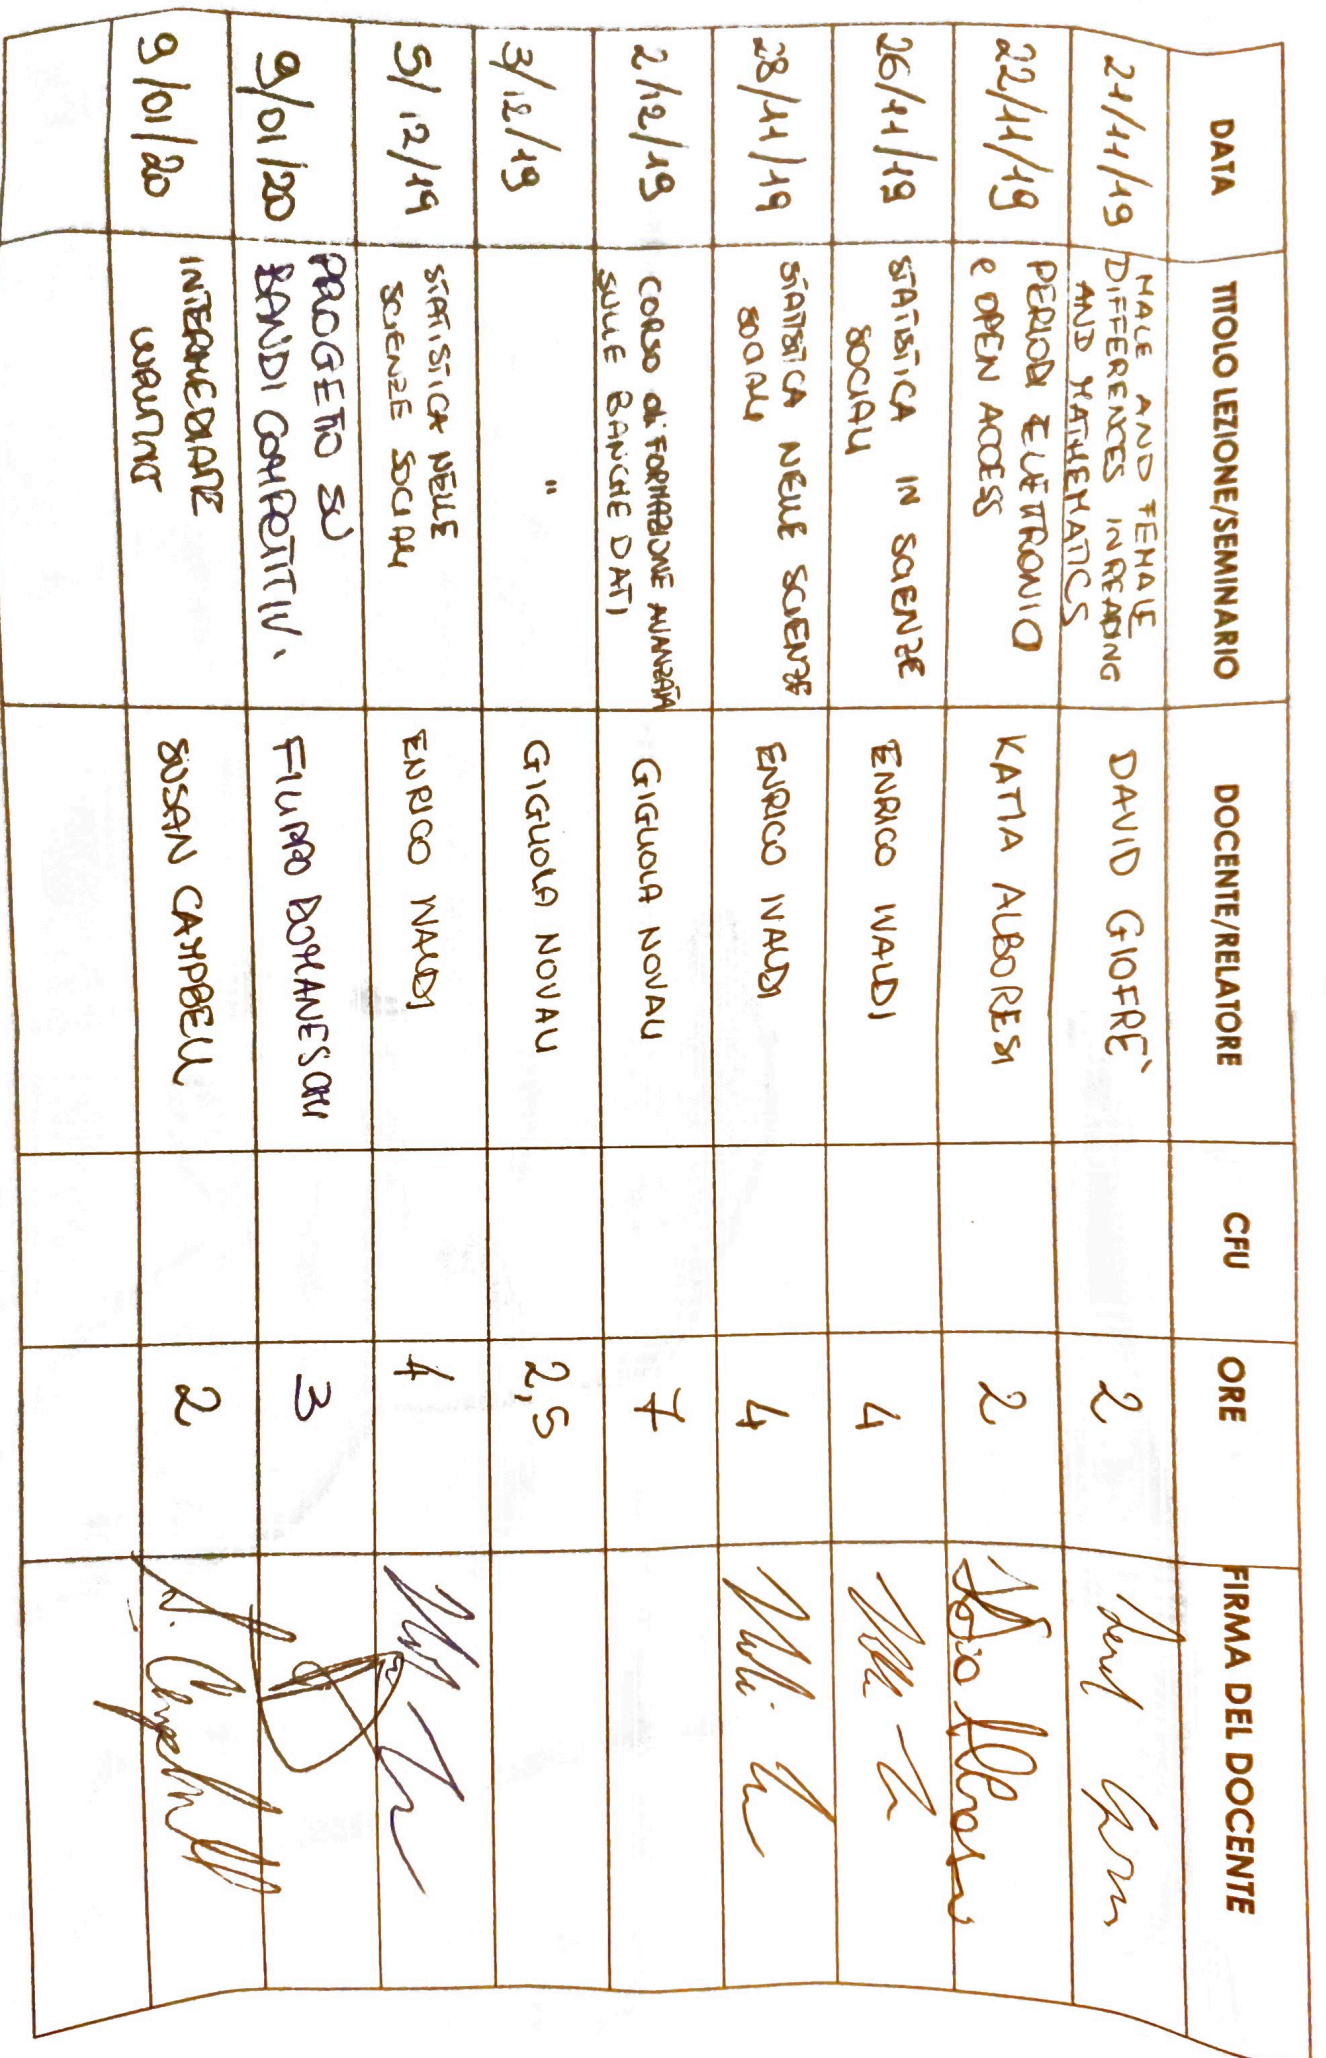 DATA TITOLO LEZIONE/SEMINARIO DOCENTE/RELATORE CFU ORE FIRMA DEL DOCENTE
21/11/19 MALE AND FEMALE
DIFFERENCES IN READING
AND MATHEMATICS DAVID GIOFRÈ 2
22/11/19 PERIODI ELETTRONICI
e OPEN ACCESS KATIA ALBORESI 2
26/11/19 STATISTICA IN SCIENZE
SOCIALI ENRICO IVALDI 4
28/11/19 STATISTICA NELLE SCIENZE
SOCIALI ENRICO IVALDI 4
2/12/19 CORSO di FORMAZIONE AVANZATA
SULLE BANCHE DATI GIGLIOLA NOVALI 7
3/12/19 " GIGLIOLA NOVALI 2,5
5/12/19 STATISTICA NELLE
SCIENZE SOCIALI ENRICO IVALDI 4
9/01/20 PROGETTO SU
BANDI COMPETITIVI FILIPPO DOMANESCHI 3
9/01/20 INTERMEDIATE
WRITING SUSAN CAMPBELL 2
S. Campbell